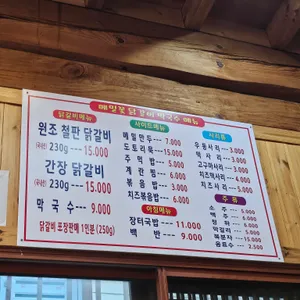 메밀꽃 닭갈비 막국수 메뉴
닭갈비메뉴
원조 철판 닭갈비
(국내산) 230g — 15.000
간장 닭갈비
(국내산) 230g — 15.000
막국수 — 9.000
닭갈비 포장판매 1인분 (250g)
사이드메뉴
메밀만두 --- 7.000
도토리묵 --- 15.000
주먹밥 --- 5.000
계란찜 --- 6.000
볶음밥 --- 3.000
치즈볶음밥 --- 6.000
아침메뉴
장터국밥 --- 11.000
백반 --- 9.000
사리류
우동사리 --- 3.000
떡사리 --- 3.000
고구마사리 --- 3.000
치즈떡사리 --- 6.000
치즈사리 --- 5.000
주류
소주 --- 5.000
맥주 --- 5.000
청하 --- 6.000
음료수 --- 2.500